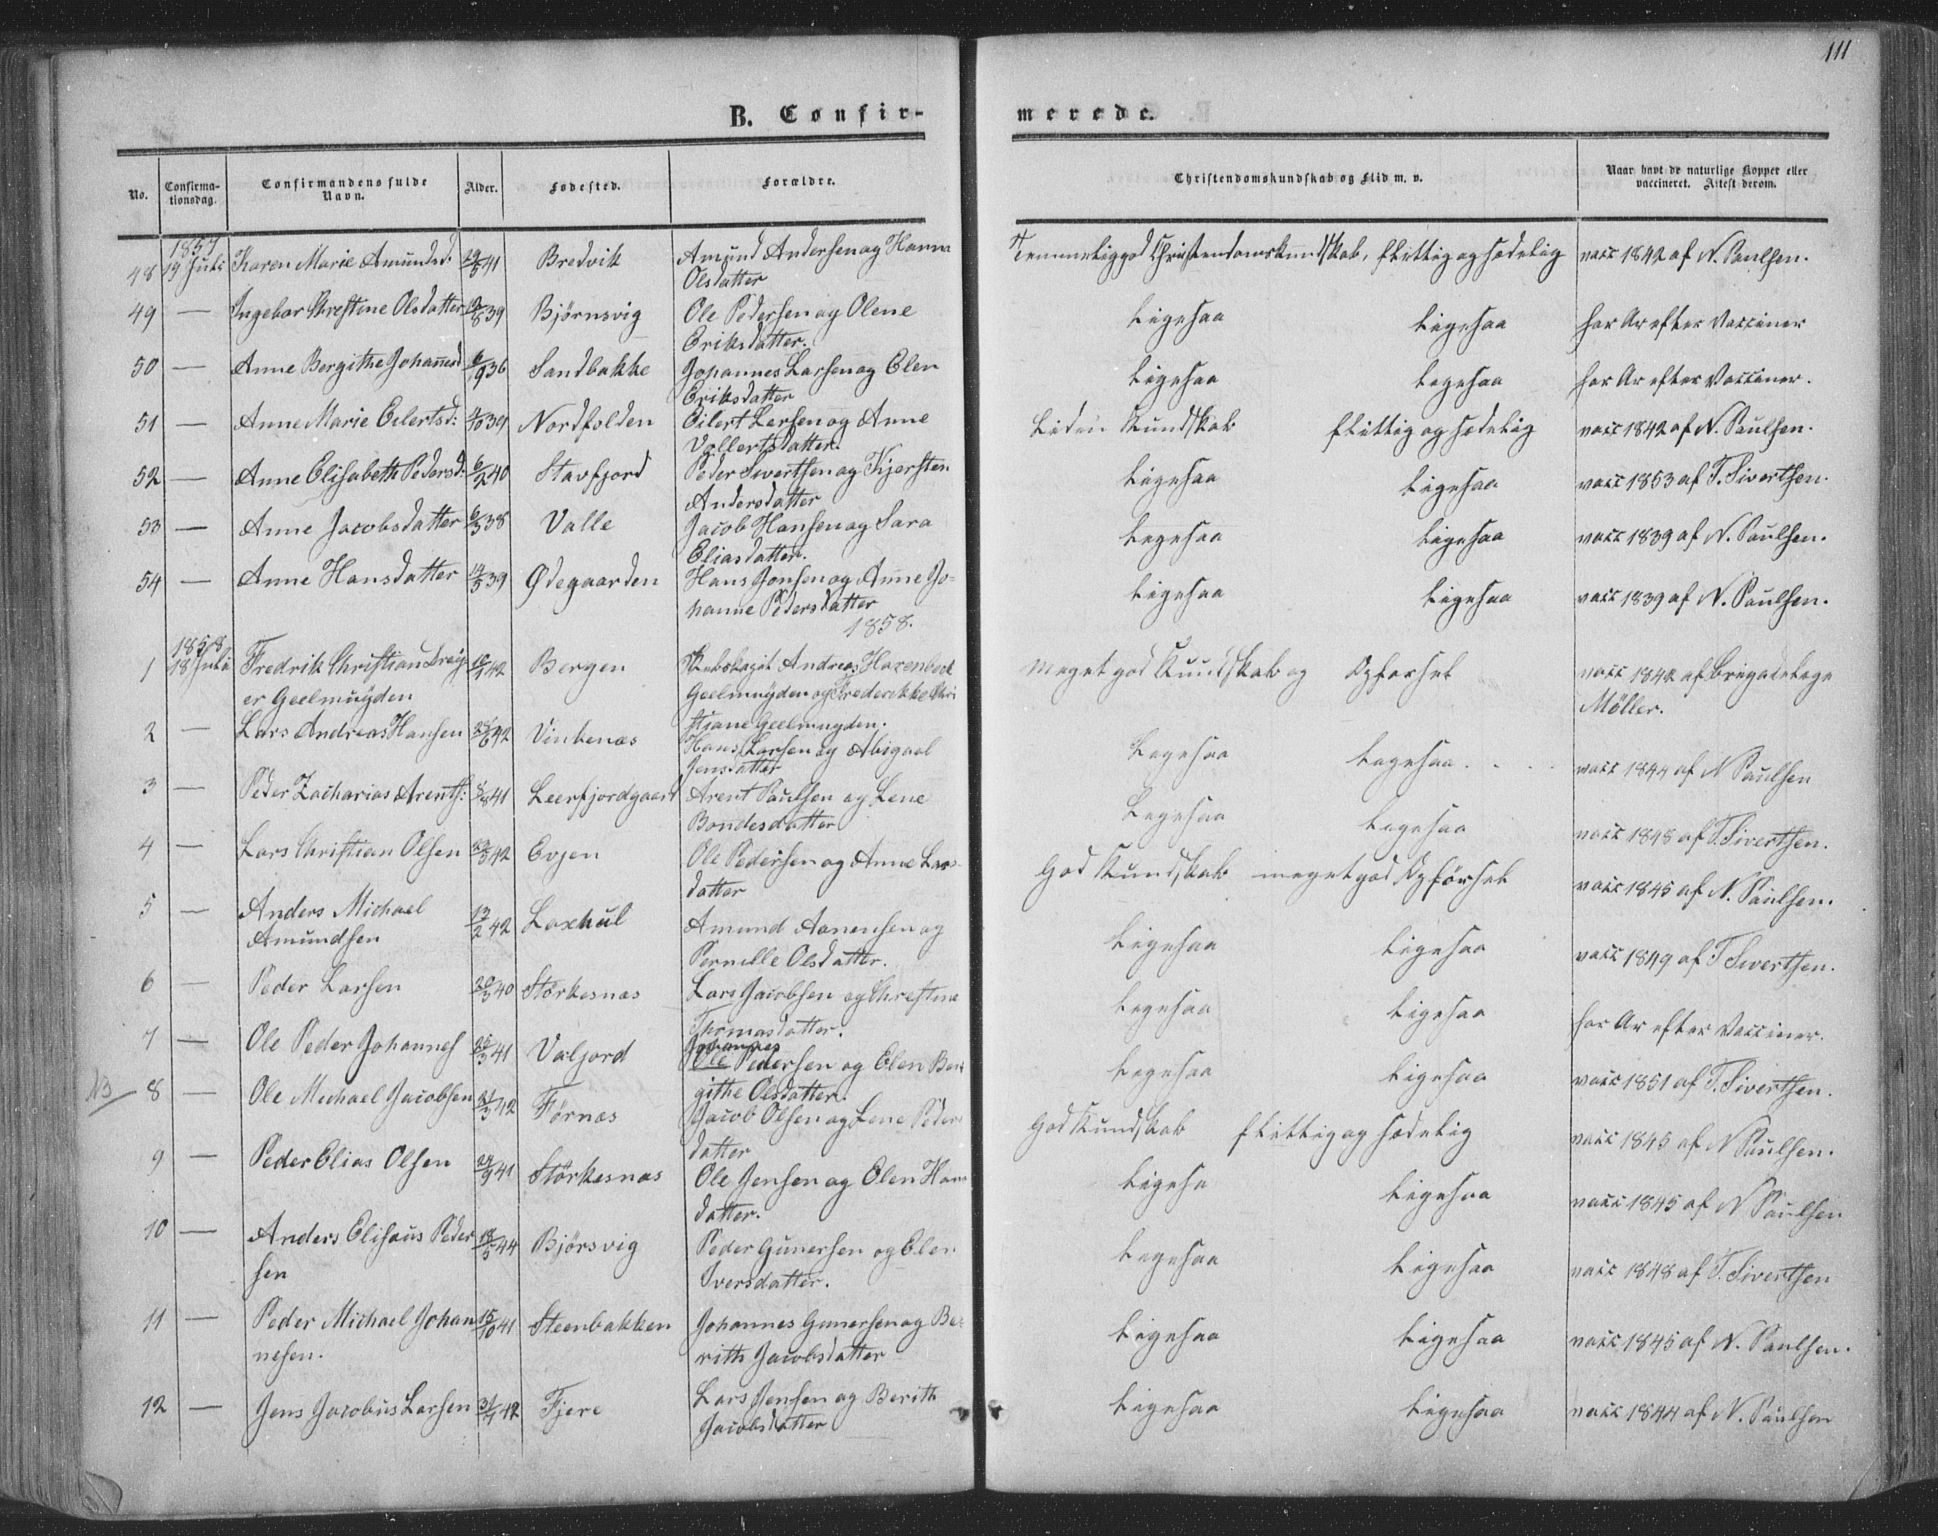 111
B. Confir-
merede.
No.
Confirma-
tionsdag.
Confirmandens fulde
Navn.
Alder.
Fødested.
Forældre.
Christendomskundskab og Flid m. v.
Naar havt de naturlige Kopper eller
vaccineret. Attest derom.
1857
48 19 Juli Karen Marie Amundsd: 41 Bredvik Amund Andersen og Hanna Temmelig god Christendomskundskab, flittig og sædelig vacc 1842 af N. Paulsen.
Olsdatter
49 — Ingebor Chrestine Olsdatter 39 Bjørnsvig Ole Pedersen og Olene Ligesaa Ligesaa har Ar efter Vacciner
Eriksdatter.
50 — Anne Bergithe Johannesd 6/9 36 Sandbakke Johannes Larsen og Elen Ligesaa Ligesaa har Ar efter Vacciner.
Eriksdatter
51 — Anne Marie Eilertsd: 39 Nordfolden Eilert Larsen og Anne Liden Kundskab flittig og sædelig vacc 1842 af N. Paulsen.
Vollertsdatter.
52 — Anne Elisabeth Pedersd: 6/2 40 Stavfjord Peder Sivertsen og Kjersten Ligesaa Ligesaa vacc 1853 af T. Sivertsen.
Andersdatter
53 — Anne Jacobsdatter 38 Valle Jacob Hansen og Sara Ligesaa Ligesaa vacc 1839 af N. Paulsen.
Eliasdatter.
54 — Anne Hansdatter 39 Ødegaarden Hans Jonsen og Anne Jo- Ligesaa Ligesaa vacc 1839 af N. Paulsen.
hanne Pedersdatter
1858.
1858
1 18 Juli Fredrik Christian Drey- 42 Bergen Andreas Geelmuyden og Frederikke Chri Meget god Kundskab og Opførsel vacc 1842 af Brigadelæge
er Geelmuyden stjane Geelmuyden. Møller.
2 — Lars Andreas Hansen 42 Vinkenæs Hans Larsen og Abigael Ligesaa Ligesaa vacc 1844 af N Paulsen
Jensdatter
3 — Peder Zacharias Arents: 41 Leerfjordgaard Arent Paulsen og Lene Ligesaa Ligesaa vacc 1848 af T. Sivertsen.
Bondesdatter
4 — Lars Christian Olsen 42 Evjen Ole Pedersen og Anne Lars- God Kundskab meget god Opførsel vacc 1845 af N. Paulsen.
datter
5 — Anders Michael 42 Laxhul Amund Aanensen og Ligesaa Ligesaa vacc 1849 af T Sivertsen.
Amundsen Pernille Olsdatter.
6 — Peder Larsen 40 Størkesnæs Lars Jacobsen og Chrestine Ligesaa Ligesaa har Ar efter Vacciner.
Thomasdatter.
7 — Ole Peder Johannes 41 Valjord Johannes
Ole Pedersen og Elen Ber Ligesaa Ligesaa vacc 1851 af T. Sivertsen.
githe Olsdatter.
8 — Ole Michael Jacobsen 42 Førnæs Jacob Olsen og Lene Peder God Kundskab flittig og sædelig vacc 1845 af N Paulsen.
datter
9 — Peder Elias Olsen 41 Størkesnæs Ole Jensen og Elen Hans Ligesa Ligesaa vacc 1845 af N Paulsen
datter.
10 — Anders Elisæus Peder 44 Bjørsvig Peder Gunersen og Elen Ligesaa Ligesaa vacc 1848 af T. Sivertsen
sen Iversdatter.
11 — Peder Michael Johan 15/10 41 Steenbakken Johannes Gunersen og Be- Ligesaa Ligesaa vacc 1845 af N. Paulsen.
nesen. rith Jacobsdatter
12 — Jens Jacobus Larsen 42 Fjere Lars Jensen og Berith Ligesaa Ligesaa vacc 1844 af N. Paulsen
Jacobsdatter